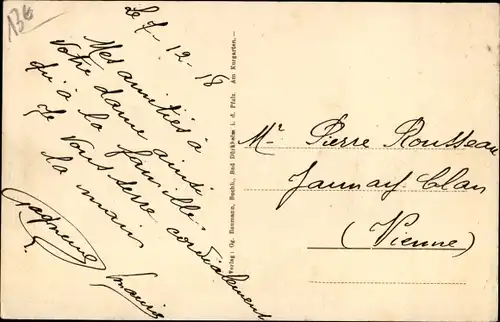 Le 7-12-18
Mes amitiés à
votre dame ainsi
qu'à la famille.
de vous serre cordialement
la main
Mr Pierre Rousseau
Jaunay-Clan
(Vienne)
Verlag: Gg. Baumann, Buchh., Bad Dürkheim i. d. Pfalz. Am Kurgarten.